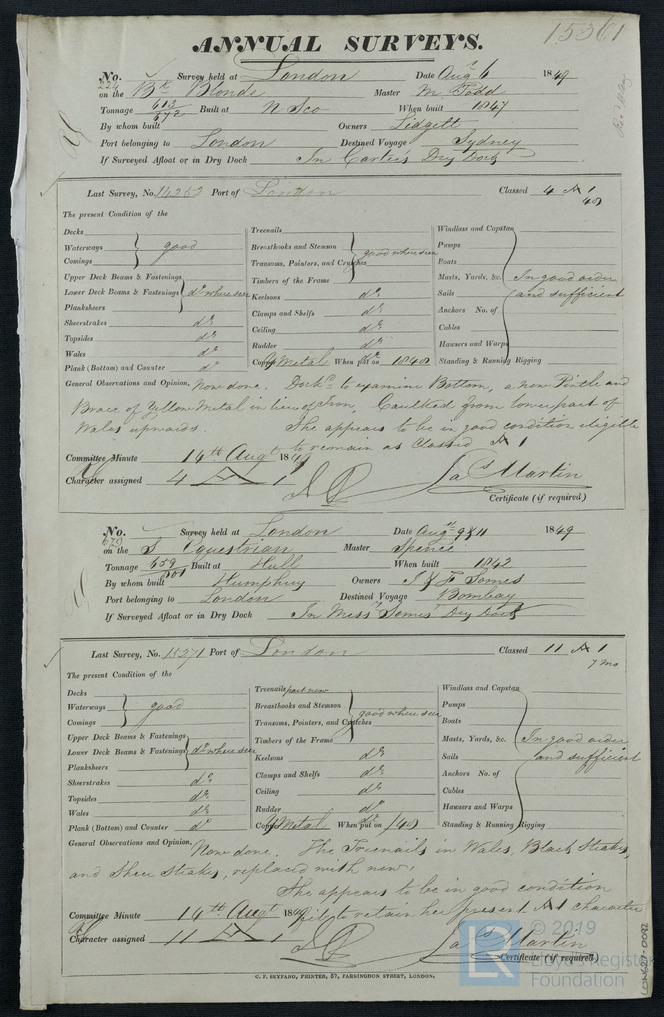 15361
ANNUAL SURVEYS.
No. 224 Survey held at London Date Augt 6 1849
on the Bk Blonde Master Wm Todd
Tonnage 613 672 Built at N Sco When built 1847
By whom built Owners Lidgett
Port belonging to London Destined Voyage Sydney
If Surveyed Afloat or in Dry Dock In Carter's Dry Dock
Last Survey, No. 14253 Port of London Classed 4 A 1
The present Condition of the
Decks
Waterways good
Comings
Upper Deck Beams & Fastenings
Lower Deck Beams & Fastenings do where seen
Planksheers
Sheerstrakes do
Topsides do
Wales do
Plank (Bottom) and Counter do
Treenails
Breasthooks and Stemson good where seen
Transoms, Pointers, and Crutches
Timbers of the Frame
Keelsons do
Clamps and Shelfs do
Ceiling do
Rudder do
Copper Y Metal When put on do 1848
Windlass and Capstan
Pumps
Boats
Masts, Yards, &c. In good order
Sails and sufficient
Anchors No. of
Cables
Hawsers and Warps
Standing & Running Rigging
General Observations and Opinion, Now done. Dockd to examine Bottom, a new Pintle and
Brace of Yellow Metal in lieu of Iron, Caulked from lower part of
Wales upwards. She appears to be in good condition eligible
to remain as Classed A 1
Committee Minute 14th Augt 1849
Character assigned 4 A 1 Jas Martin
Certificate (if required)
No. 679 Survey held at London Date Augt 9 & 11 1849
on the S Equestrian Master Spence
Tonnage 659 801 Built at Hull When built 1842
By whom built Humphrey Owners J & F Somes
Port belonging to London Destined Voyage Bombay
If Surveyed Afloat or in Dry Dock In Messrs Somes' Dry Dock
Last Survey, No. 15271 Port of London Classed 11 A 1
7 mo
The present Condition of the
Decks
Waterways good
Comings
Upper Deck Beams & Fastenings
Lower Deck Beams & Fastenings do where seen
Planksheers
Sheerstrakes do
Topsides do
Wales do
Plank (Bottom) and Counter do
Treenails part new
Breasthooks and Stemson
Transoms, Pointers, and Crutches good where seen
Timbers of the Frame
Keelsons do
Clamps and Shelfs do
Ceiling do
Rudder do
Copper Y Metal When put on do /48
Windlass and Capstan
Pumps
Boats
Masts, Yards, &c. In good order
Sails and sufficient
Anchors No. of
Cables
Hawsers and Warps
Standing & Running Rigging
General Observations and Opinion, Now done. The Treenails in Wales, Black Strakes,
and Sheer Strakes, replaced with new.
She appears to be in good condition
fit to retain her present A 1 character
Committee Minute 14th Augt 1849
Character assigned 11 A 1 Jas Martin
Certificate (if required)
C. F. SEYFANG, PRINTER, 57, FARRINGDON STREET, LONDON.
© 2019
Lloyd's Register
Foundation
LON627-0092